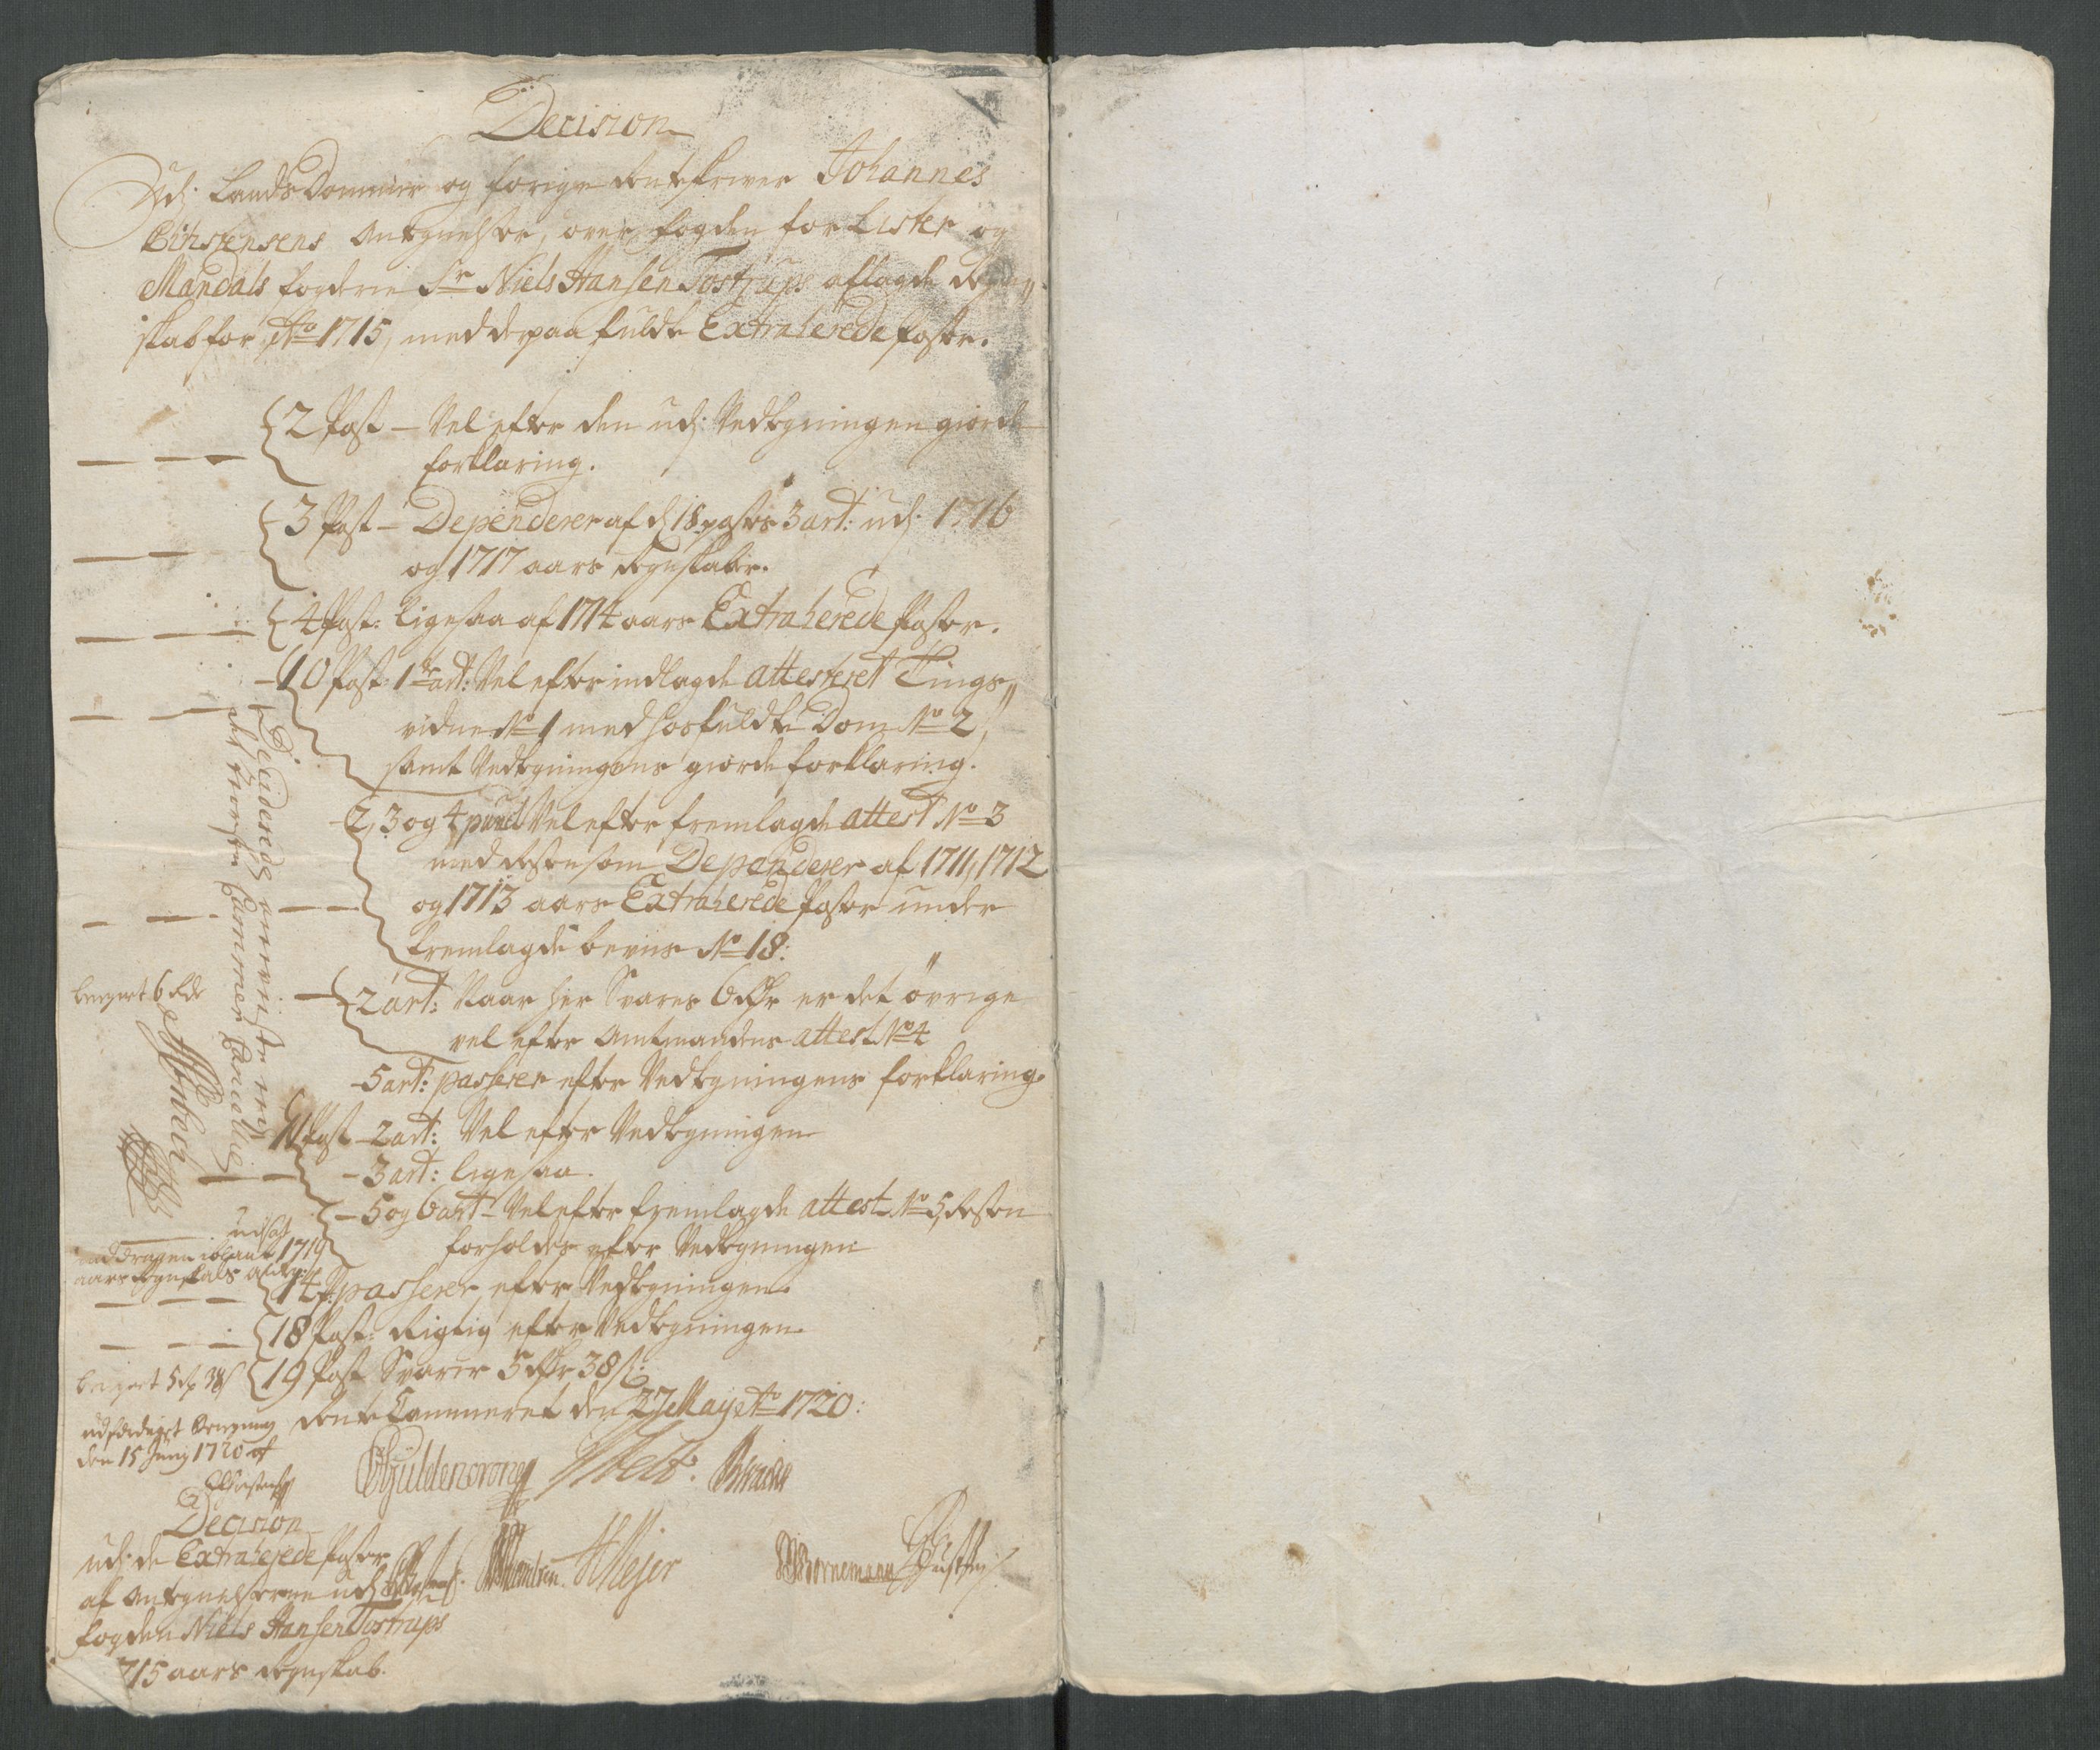 Decision
Udj Lands Dommer og forige Renteskriver Johannes
Christensens Antegnelser, over fogden for Lister og
Mandals fogderie Sr Niels Hansen Tostrups aflagde Regn„
skab for Ao 1715, med derpaa fuldte Extraherede Poster.
2 Post — Vel efter den udj Vedtegningen giorde
forklaring.
3 Post — Dependerer af d 18 postes 3 art: udj 1716
og 1717 aars Regnskaber.
4 Post: ligesaa af 1714 aars Extraherede Poster.
10 Post: 1te art: Vel efter indlagde attesteret Tings„
vidne No 1 med hosfuldte Dom No 2,
samt Vedtegningens giorde forklaring.
2, 3 og 4 punct Vel efter fremlagde attest No 3
med Resten som Dependerer af 1711, 1712
og 1713 aars Extraherede Poster under
fremlagde beviis No 18:
2 art: Naar her Svares 6 Rdr er det øvrige
vel efter Amtmandens attest No 4
5 art: passerer efter Vedtegningens forklaring.
11 Post — 2 art: Vel efter Vedtegningen
3 art: ligesaa.
5 og 6 art: Vel efter fremlagde attest No 5, Resten
forholdes efter Vedtegningen
14 P: passerer efter Vedtegningen.
18 Post: Rigtig efter Vedtegningen.
19 Post Svarer 5 Rdr 38 ß:
Rente Cammeret den 27 May Ao 1720:
CGüldencrone
Bornemann
HMejer
6 Rdr
1719
aars Regnskabs
5 Rd 38 ß
den 15 Junij 1720 af
Decision
udj de Extraherede Poster
af Antegnelserne udj
fogden Niels Hansen Tostrups
1715 aars Regnskab.